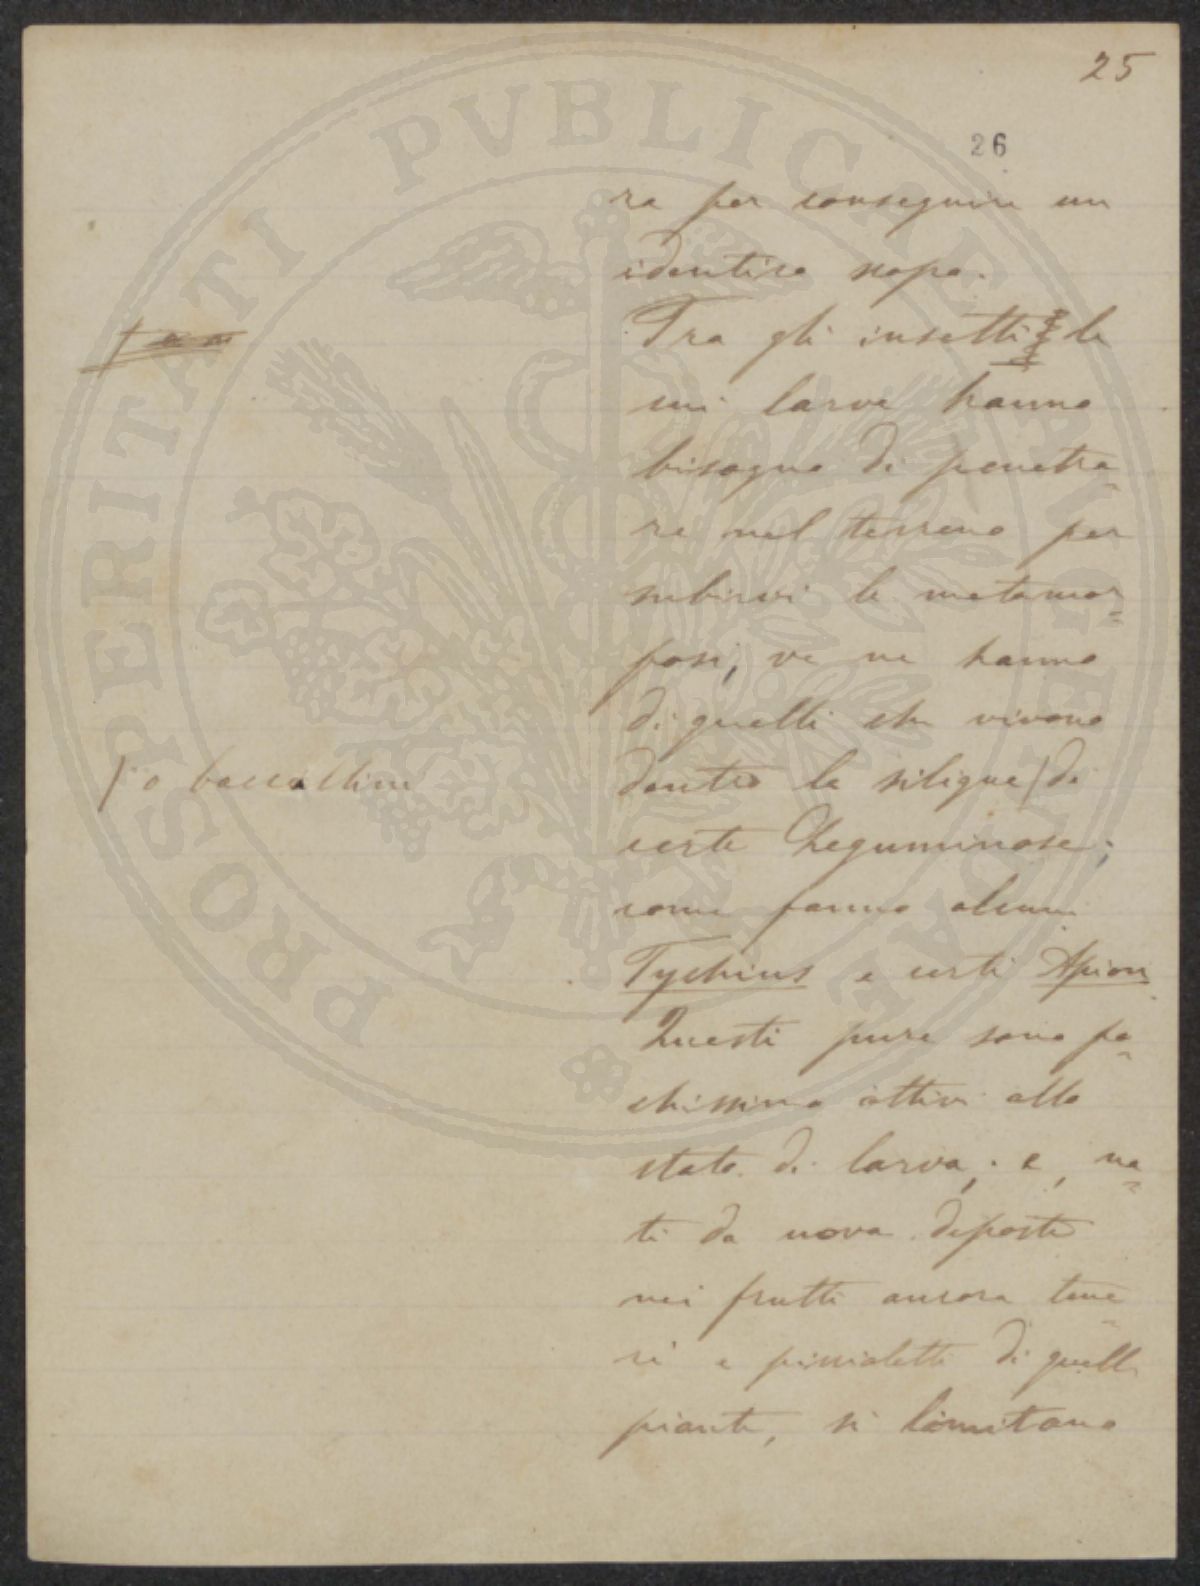 25
26
ra per conseguire un
identico scopo.
Tra gli insetti le
cui larve hanno
bisogno di penetra-
re nel terreno per
subirvi le metamor-
fosi, ve ne hanno
di quelli che vivono
dentro le silique / di
/ o baccelline
certe Leguminose;
come fanno alcuni
Tychius e certi Apion.
Questi pure sono po-
chissimo attivi allo
stato di larva; e, na-
ti da uova deposte
nei frutti ancora tene-
ri e piccioletti di quelle
piante, si limitano
PROSPERITATI PVBLICAE AVGENDAE